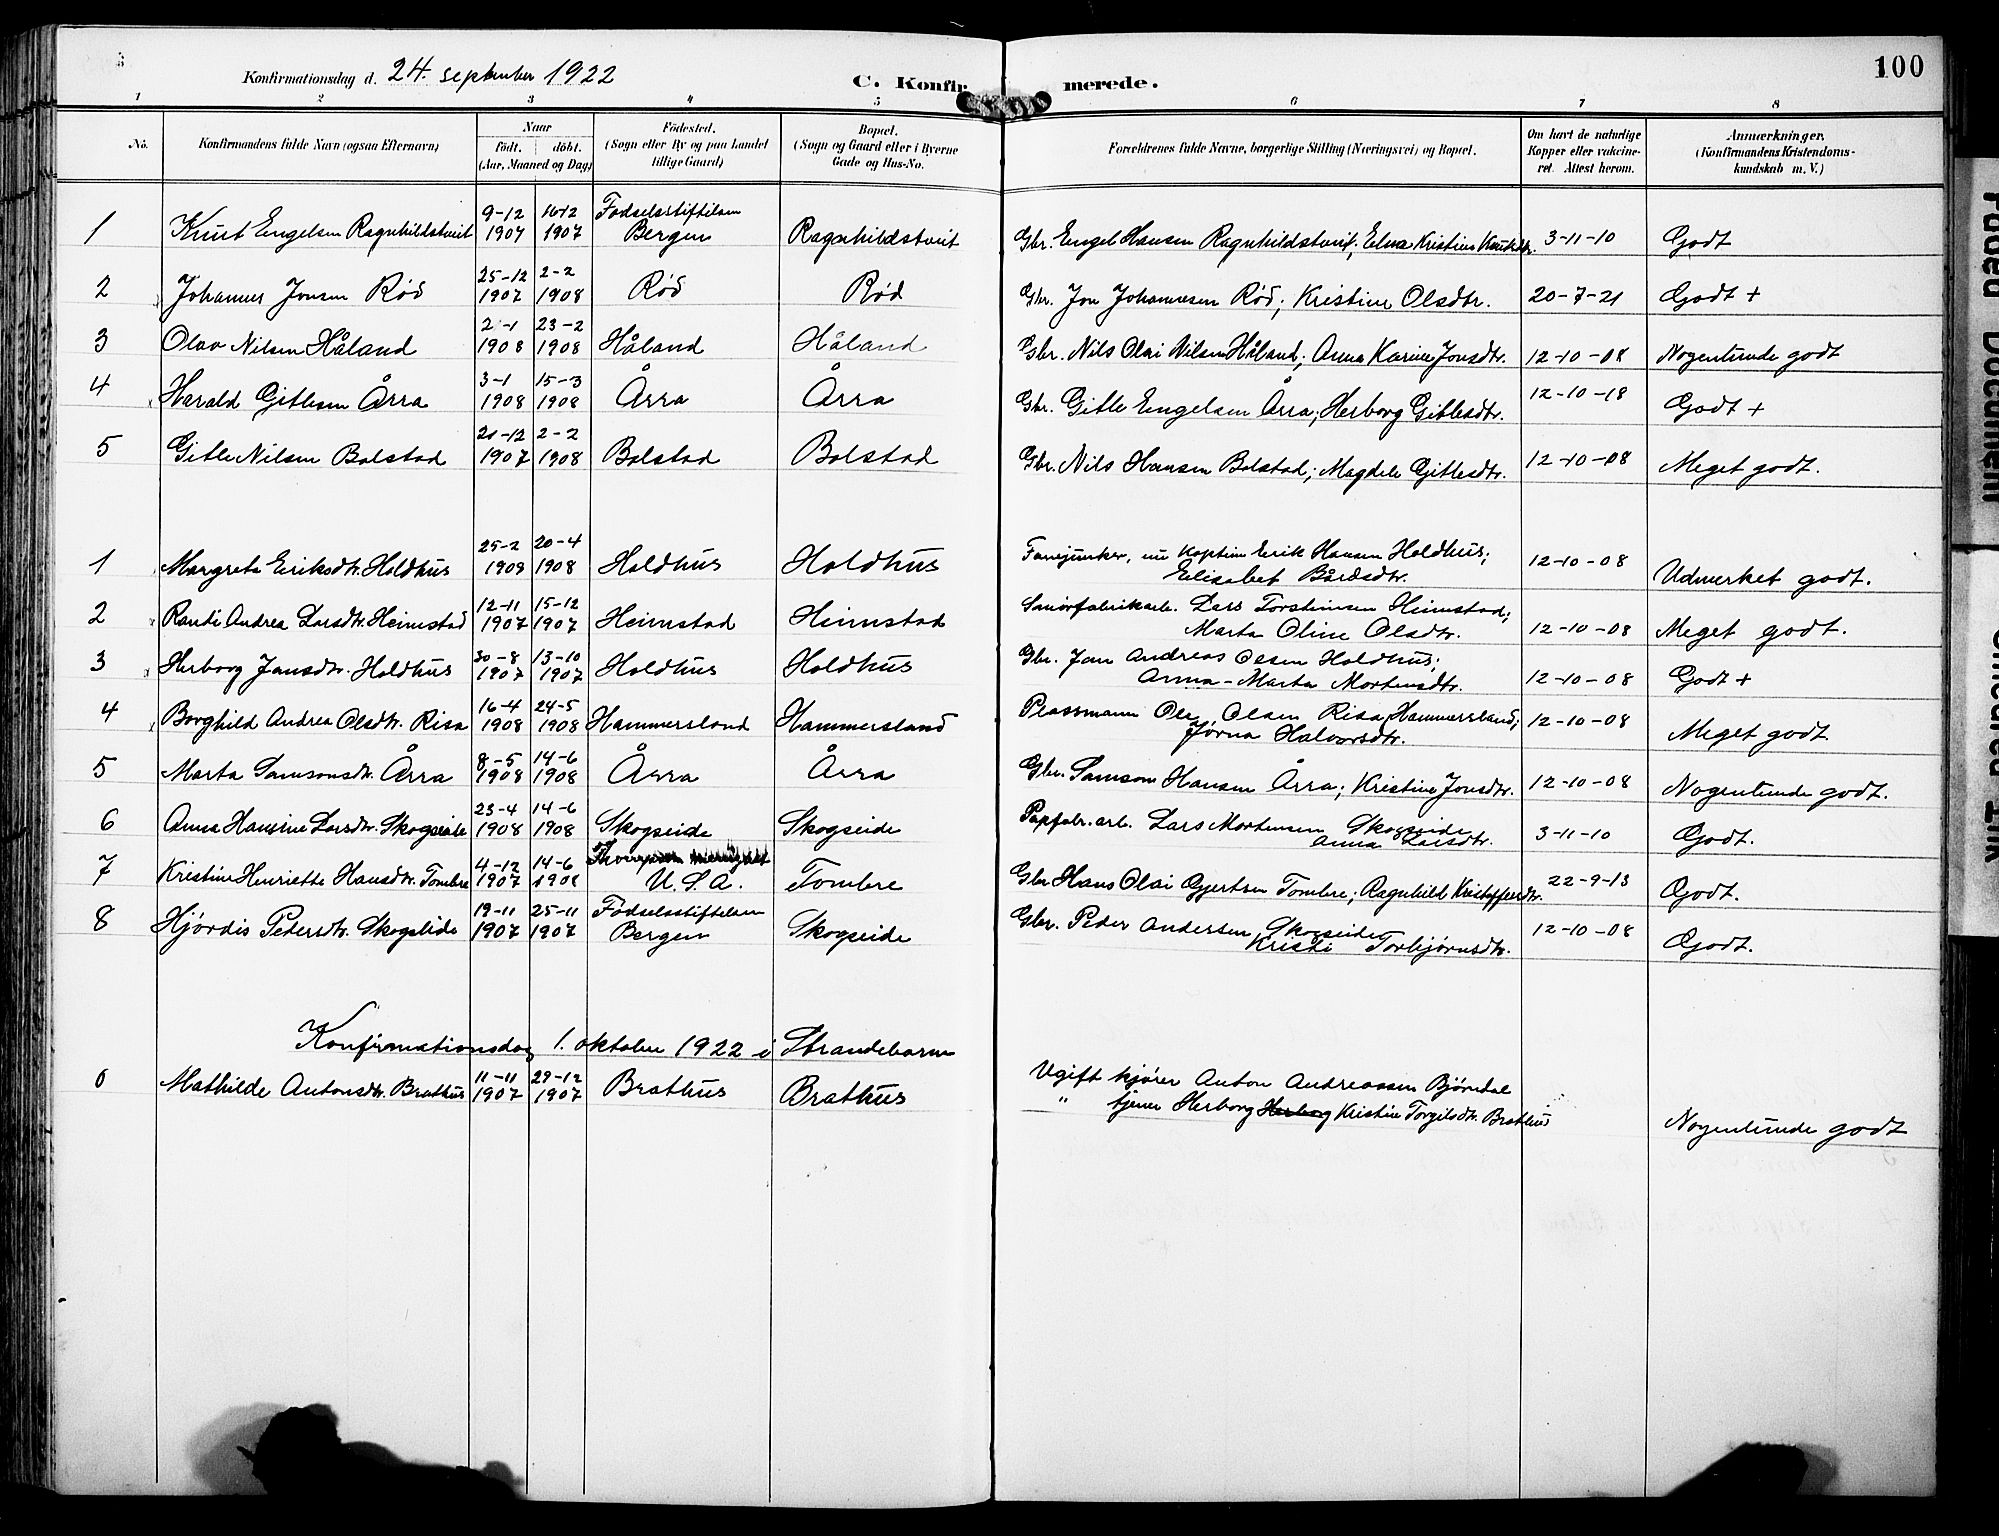 100
Konfirmationsdag d. 24. september 1922
C. Konfirmerede.
1 2 3 4 5 6 7 8
No. Konfirmandens fulde Navn (ogsaa Efternavn) Naar født. døbt. (Aar, Maaned og Dag) Fødested. (Sogn eller By og paa Landet tillige Gaard) Bopæl. (Sogn og Gaard eller i Byerne Gade og Hus-No. Forældrenes fulde Navne, borgerlige Stilling (Næringsvei) og Bopæl. Om havt de naturlige Kopper eller vakcineret. Attest herom. Anmærkninger. (Konfirmandens Kristendomskundskab m. V.)
1 Knut Engelsen Ragnhildstveit 9-12 1907 16-12 1907 Fødselsstiftelsen Bergen Ragnhildstveit Gbr. Engel Hansen Ragnhildstveit, Elna Kristine Knutsdtr. 3-11-10 Godt
2 Johannes Jonsen Rød 25-12 1907 2-2 1908 Rød Rød Gbr. Jon Johannesen Rød; Kristine Olsdtr. 20-7-21 Godt +
3 Olav Nilsen Håland 2-1 1908 23-2 1908 Håland Håland Gbr. Nils Olai Nilsen Håland; Anna Karine Jonsdtr. 12-10-08 Nogenlunde godt
4 Harald Gitlesen Årra 3-1 1908 15-3 1908 Årra Årra Gbr. Gitle Engelsen Årra; Herborg Gitlesdtr. 12-10-18 Godt +
5 Gitle Nilsen Bolstad 21-12 1907 2-2 1908 Bolstad Bolstad Gbr. Nils Hansen Bolstad; Magdele Gitlesdtr. 12-10-08 Meget godt.
1 Margreta Eriksdtr. Holdhus 25-2 1908 20-4 1908 Holdhus Holdhus Fanejunker, nu kaptein Erik Hansen Holdhus; Elisabet Bårdsdtr. 12-10-08 Udmerket godt.
2 Randi Andrea Larsdtr. Heimstad 12-11 1907 15-12 1907 Heimstad Heimstad Smørfabrikarb. Lars Torsteinsen Heimstad; Marta Oline Olsdtr. 12-10-08 Meget godt.
3 Herborg Jansdtr. Holdhus 30-8 1907 13-10 1907 Holdhus Holdhus Gbr. Jan Andreas Olsen Holdhus; Anna-Marta Mortensdtr. 12-10-08 Godt +
4 Borghild Andrea Olsdtr. Risa 16-4 1908 24-5 1908 Hammersland Hammersland Plassmann Ole Olsen Risa, Hammersland; Jørna Halvorsdtr. 12-10-08 Meget godt.
5 Marta Samsonsdtr. Årra 8-5 1908 14-6 1908 Årra Årra Gbr. Samson Hansen Årra; Kristine Jonsdtr. 12-10-08 Nogenlunde godt.
6 Anna Hansine Larsdtr. Skogseide 23-4 1908 14-6 1908 Skogseide Skogseide Papfabr. arb. Lars Mortensen Skogseide Anna Larsdtr. 3-11-10 Godt.
7 Kristine Henriette Hansdtr. Tombre 4-12 1907 14-6 1908 U.S.A. Tombre Gbr Hans Olai Gjertsen Tombre; Ragnhild Kristoffersdtr. 22-9-13 Godt.
8 Hjørdis Pedersdtr. Skogseide 19-11 1907 25-11 1907 Fødselsstiftelsen Bergen Skogseide Gbr. Peder Andersen Skogseide, Kristi Torbjørnsdtr. 12-10-08 Godt.
Konfirmationsdag 1. oktober 1922 i Strandebarm
0 Mathilde Antonsdtr. Brathus 11-11 1907 29-12 1907 Brathus Brathus Ugift kjører Anton Andreassen Bjørndal
" tjener Herborg Herborg Kristine Torgilsdtr. Brathus Nogenlunde godt